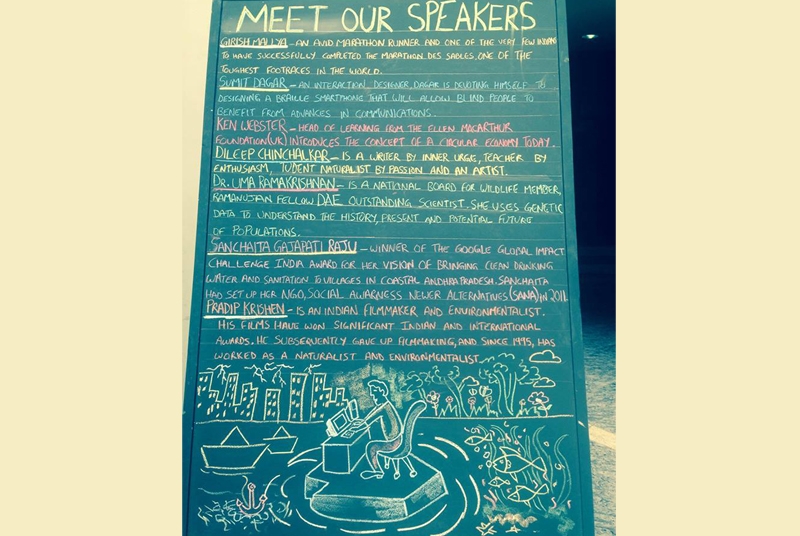 MEET OUR SPEAKERS
GIRISH MALLYA - AN AVID MARATHON RUNNER AND ONE OF THE VERY FEW INDIANS
TO HAVE SUCCESSFULLY COMPLETED THE MARATHON DES SABLES, ONE OF THE
TOUGHEST FOOTRACES IN THE WORLD.
SUMIT DAGAR - AN INTERACTION DESIGNER, DAGAR IS DEVOTING HIMSELF TO
DESIGNING A BRAILLE SMARTPHONE THAT WILL ALLOW BLIND PEOPLE TO
BENEFIT FROM ADVANCES IN COMMUNICATIONS.
KEN WEBSTER - HEAD OF LEARNING FROM THE ELLEN MACARTHUR
FOUNDATION(UK) INTRODUCES THE CONCEPT OF A CIRCULAR ECONOMY TODAY.
DILEEP CHINCHALKAR - IS A WRITER BY INNER URGE, TEACHER BY
ENTHUSIASM, TUDENT NATURALIST BY PASSION AND AN ARTIST.
DR. UMA RAMAKRISHNAN - IS A NATIONAL BOARD FOR WILDLIFE MEMBER,
RAMANUJAN FELLOW DAE OUTSTANDING SCIENTIST. SHE USES GENETIC
DATA TO UNDERSTAND THE HISTORY, PRESENT AND POTENTIAL FUTURE
OF POPULATIONS.
SANCHAITA GAJAPATI RAJU - WINNER OF THE GOOGLE GLOBAL IMPACT
CHALLENGE INDIA AWARD FOR HER VISION OF BRINGING CLEAN DRINKING
WATER AND SANITATION TO VILLAGES IN COASTAL ANDHRA PRADESH. SANCHAITA
HAD SET UP HER NGO, SOCIAL AWARNESS NEWER ALTERNATIVES (SANA) IN 2011
PRADIP KRISHEN - IS AN INDIAN FILMMAKER AND ENVIRONMENTALIST.
HIS FILMS HAVE WON SIGNIFICANT INDIAN AND INTERNATIONAL
AWARDS. HE SUBSEQUENTLY GAVE UP FILMMAKING, AND SINCE 1995, HAS
WORKED AS A NATURALIST AND ENVIRONMENTALIST